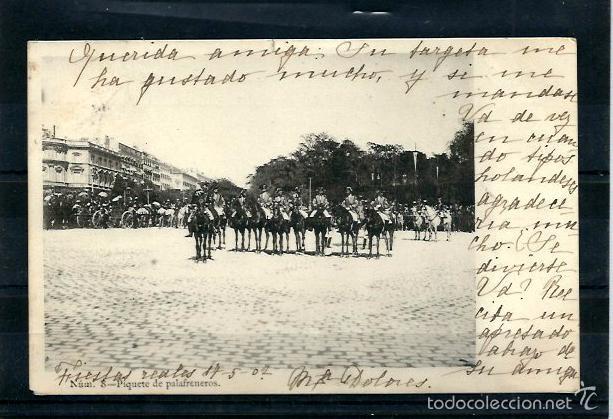 Querida amiga: Su targeta me
ha gustado mucho, y si me
mandase
Vd de vez
en cuan
do tipos
holandeses
agradece
ria mu
cho. Se
divierte
Vd? Rec
ciba un
apretado
abrazo de
su amiga
Fiestas reales 17-5-02 Mª Dolores.
Núm. 8—Piquete de palafreneros.
© todocoleccion.net